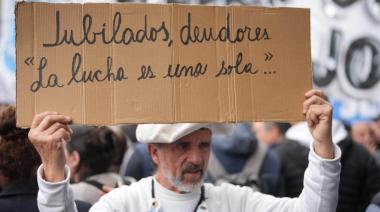 Jubilados, deudores
"La lucha es una sola"...